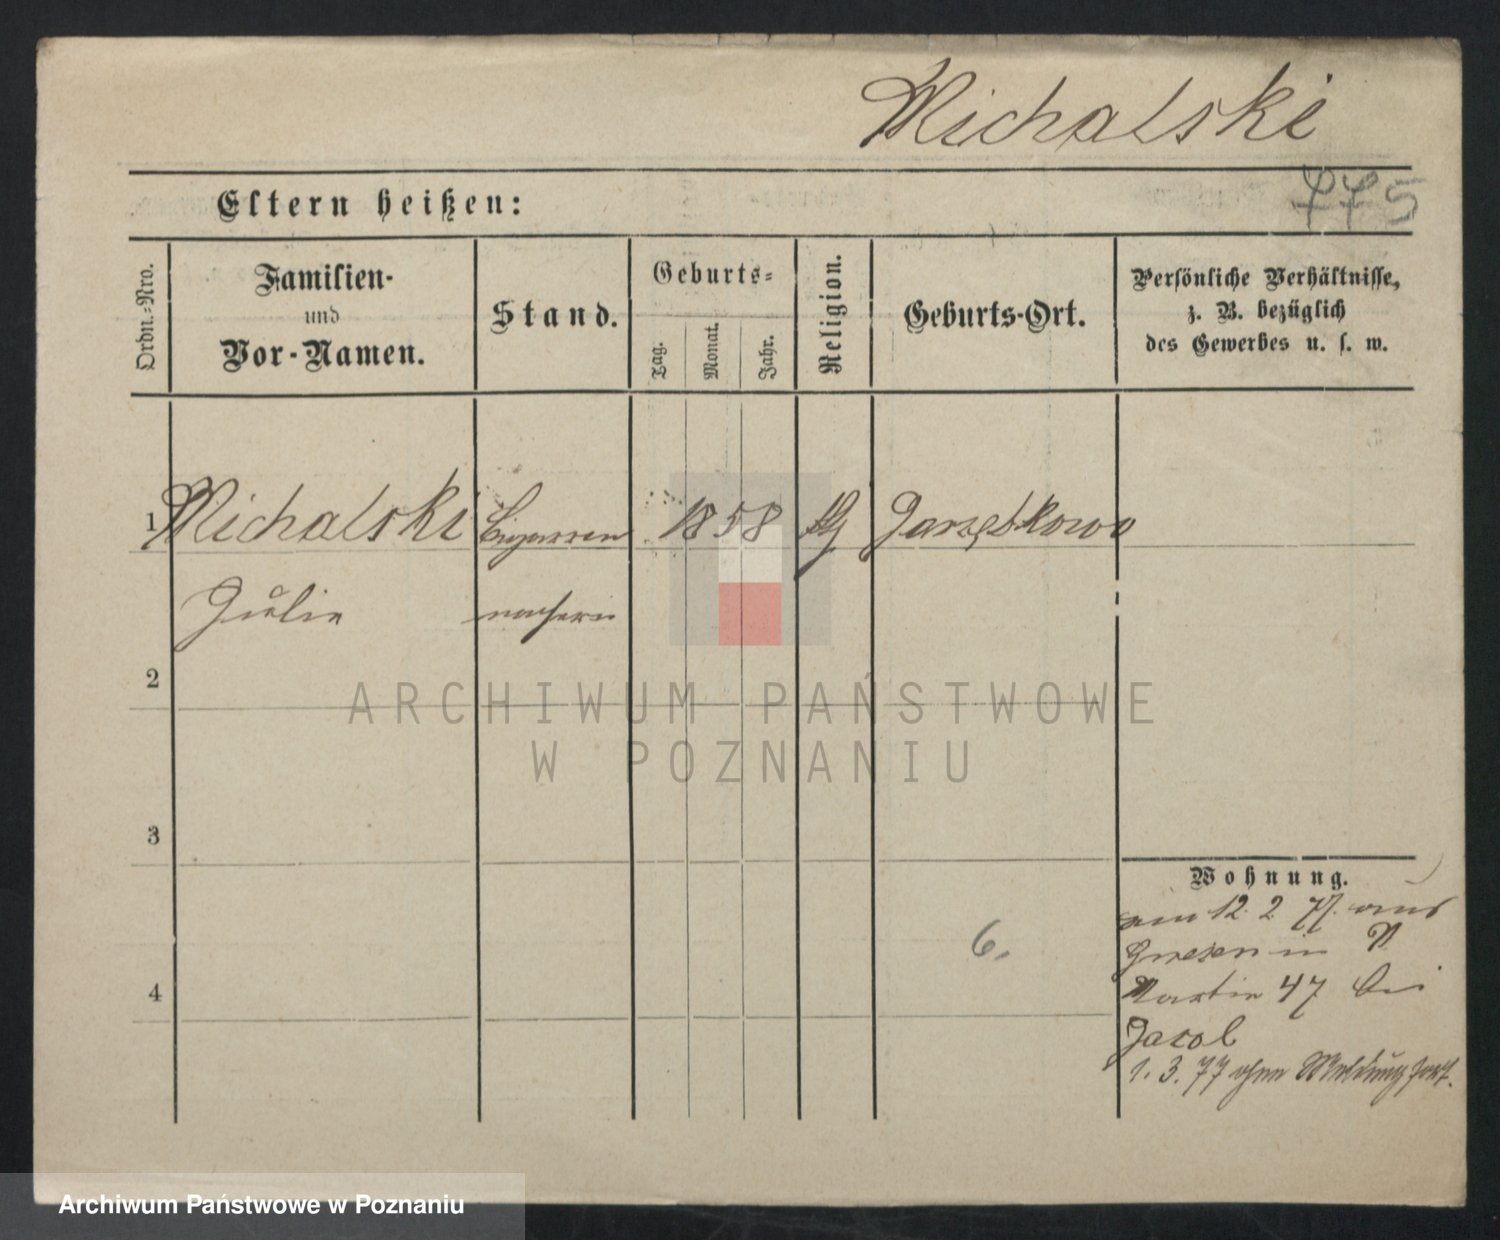 Michalski
775
Eltern heißen:
Ordn.=Nro.
Familien-
und
Vor-Namen.
Stand.
Geburts=
Tag.
Monat.
Jahr.
Religion.
Geburts-Ort.
Persönliche Verhältnisse,
z. B. bezüglich
des Gewerbes u. s. w.
1 Michalski Cigarren 1858 Jarząbkowo
Julie macherin
2
ARCHIWUM PAŃSTWOWE
W POZNANIU
3
Wohnung.
am 12. 2. 77. aus
Gnesen in
6.
Martin 47 bei
4
Jacob
1. 3. 77 ohne Meldung fort.
Archiwum Państwowe w Poznaniu